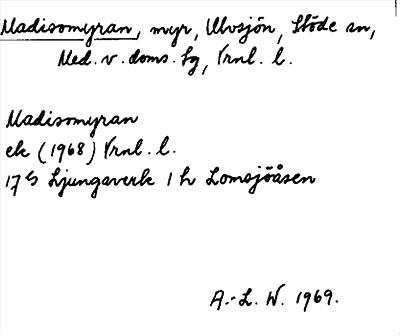 Madisomyran, myr, Ulvsjön, Stöde sn,
Med. v. doms. tg, Vrnl. l.
Madisomyran
ek (1968) Vrnl. l.
17G Ljungaverk 1 h Lomsjöåsen
A.-L. W. 1969.